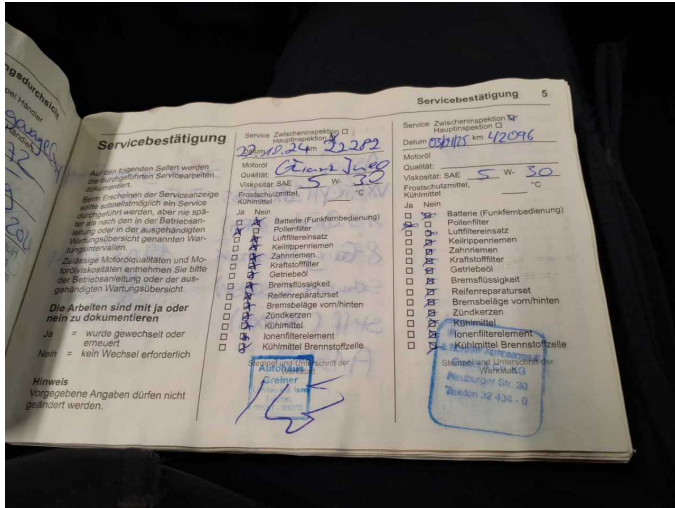 Servicebestätigung
Auf den folgenden Seiten werden
die durchgeführten Servicearbeiten
dokumentiert.
Beim Erscheinen der Serviceanzeige
sollte schnellstmöglich ein Service
durchgeführt werden, aber nie spä-
ter als nach den in der Betriebsan-
leitung oder in der ausgehändigten
Wartungsübersicht genannten War-
tungsintervallen.
Zulässige Motorölqualitäten und Mo-
torölviskositäten entnehmen Sie bitte
der Betriebsanleitung oder der aus-
gehändigten Wartungsübersicht.
Die Arbeiten sind mit ja oder
nein zu dokumentieren
Ja = wurde gewechselt oder
erneuert
Nein = kein Wechsel erforderlich
Hinweis
Vorgegebene Angaben dürfen nicht
geändert werden.
Service Zwischeninspektion
Hauptinspektion
Datum km 22282
Motoröl
Qualität:
Viskosität: SAE 5 W- 30
Frostschutzmittel, °C
Kühlmittel
Ja Nein
Batterie (Funkfernbedienung)
Pollenfilter
Luftfiltereinsatz
Keilrippenriemen
Zahnriemen
Kraftstofffilter
Getriebeöl
Bremsflüssigkeit
Reifenreparaturset
Bremsbeläge vorn/hinten
Zündkerzen
Kühlmittel
Ionenfilterelement
Kühlmittel Brennstoffzelle
Stempel und Unterschrift der
Werkstatt
Autohaus
Greiner
Servicebestätigung 5
Service Zwischeninspektion
Hauptinspektion
Datum km 42096
Motoröl
Qualität:
Viskosität: SAE 5 W- 30
Frostschutzmittel, °C
Kühlmittel
Ja Nein
Batterie (Funkfernbedienung)
Pollenfilter
Luftfiltereinsatz
Keilrippenriemen
Zahnriemen
Kraftstofffilter
Getriebeöl
Bremsflüssigkeit
Reifenreparaturset
Bremsbeläge vorn/hinten
Zündkerzen
Kühlmittel
Ionenfilterelement
Kühlmittel Brennstoffzelle
Stempel und Unterschrift der
Werkstatt
AUTOMOBILE
KG
Neuburger Str. 30
32 434 - 0